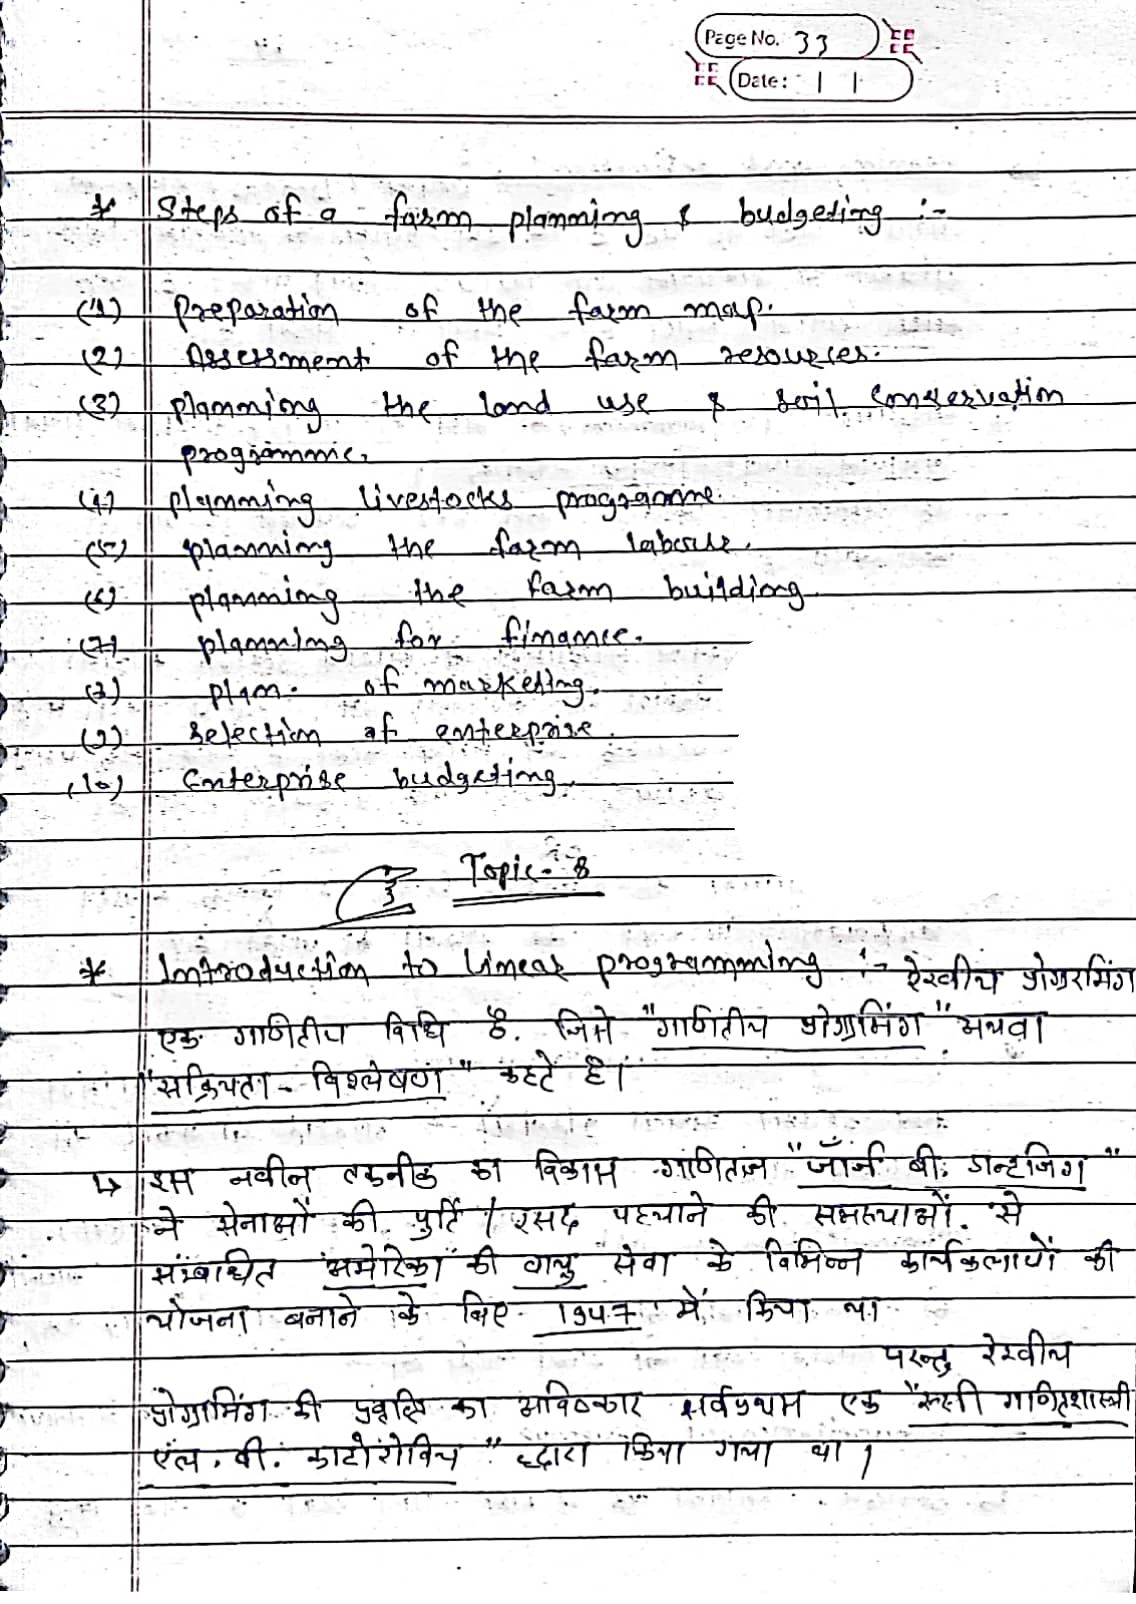 Page No. 33
Date: | |
* Steps of a farm planning & budgeting :-
(1) Preparation of the farm map.
(2) Assessment of the farm resources.
(3) planning the land use & soil conservation
programme.
(4) planning livestocks programme.
(5) planning the farm labour.
(6) planning the farm building
(7) planning for finance.
(8) plan. of marketing.
(9) selection of enterprise.
(10) Enterprise budgeting.
Topic-8
* Introduction to linear programming :- रेखीय प्रोग्रामिंग
एक गणितीय विधि है. जिसे "गणितीय प्रोग्रामिंग" अथवा
"सक्रियता - विश्लेषण" कहते है।
↳ इस नवीन तकनीक का विकास गणितज्ञ "जॉर्ज बी. डान्टजिग"
ने सेनाओं की पुर्ति / रसद पहचाने की समस्याओं. से
संम्बधित अमेरिका की वायु सेवा के विभिन्न कार्यकलापों की
योजना बनाने के लिए 1947 में किया था
परन्तु रेखीय
प्रोग्रामिंग की प्रवृत्ति का अविष्कार सर्वप्रथम एक "रूसी गणितशास्त्री
एल. वी. काटोरोविच" द्वारा किया गया था।